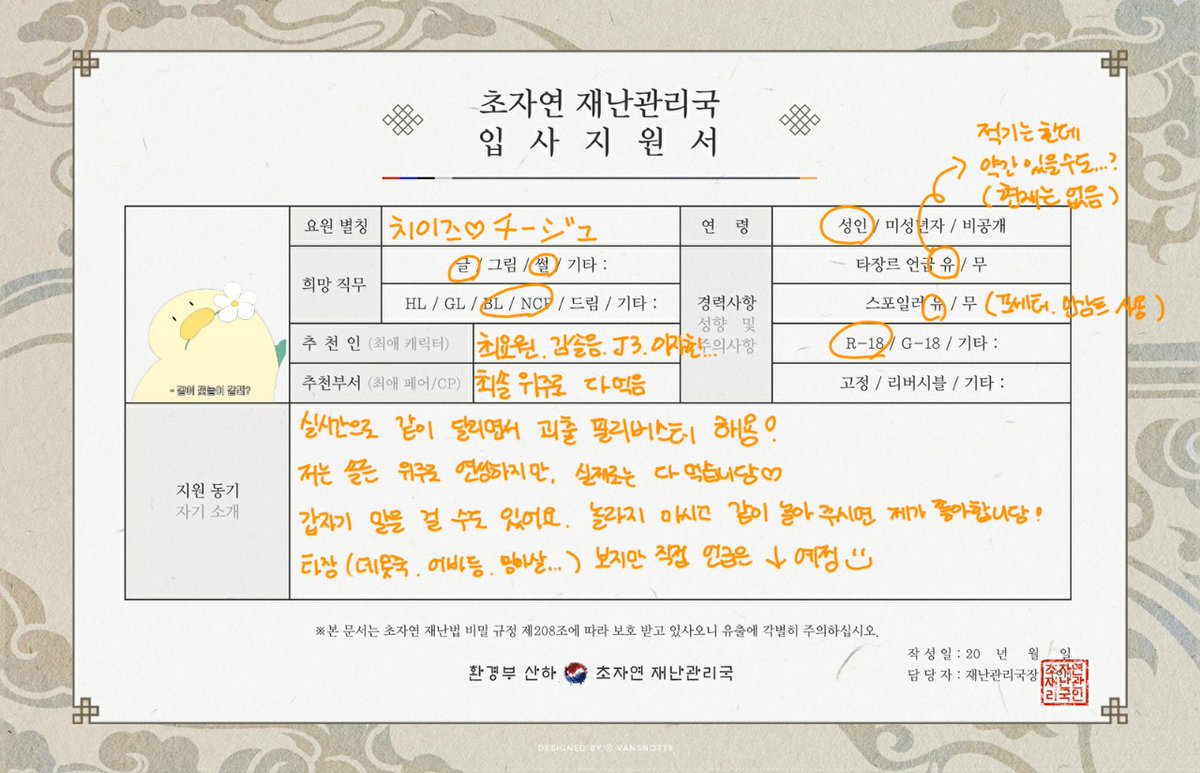 초자연 재난관리국
입 사 지 원 서
적기는 한데
약간 있을수도...?
(현재는 없음)
요원 별칭 치이즈♡チージュ
연 령 성인 / 미성년자 / 비공개
희망 직무 글 / 그림 / 썰 / 기타 :
HL / GL / BL / NCP / 드림 / 기타 :
경력사항
성향 및
주의사항
타장르 언급 유 / 무
스포일러 유 / 무 (포세터. 인장트 사용)
R-18 / G-18 / 기타 :
고정 / 리버시블 / 기타 :
추 천 인 (최애 캐릭터) 최요원. 김솔음. J3. 이자헌...
추천부서 (최애 페어/CP) 최솔 위주로 다먹음
- 같이 꽃놀이 갈래?
지원 동기
자기 소개
실시간으로 같이 달리면서 괴출 필리버스터 해용?
저는 솔른 위주로 연성하지만, 실제로는 다 먹습니당♡
갑자기 말을 걸 수도 있어요. 놀라지 마시고 같이 놀아 주시면 제가 좋아합니당!
타장(데못죽. 어바등. 망아살...) 보지만 직접 언급은 ↓ 예정
※본 문서는 초자연 재난법 비밀 규정 제208조에 따라 보호 받고 있사오니 유출에 각별히 주의하십시오.
작 성 일 : 20 년 월 일
담 당 자 : 재난관리국장
환경부 산하 초자연 재난관리국
초자연
재난관
리국인
DESIGNED BY © VANSNOTTE